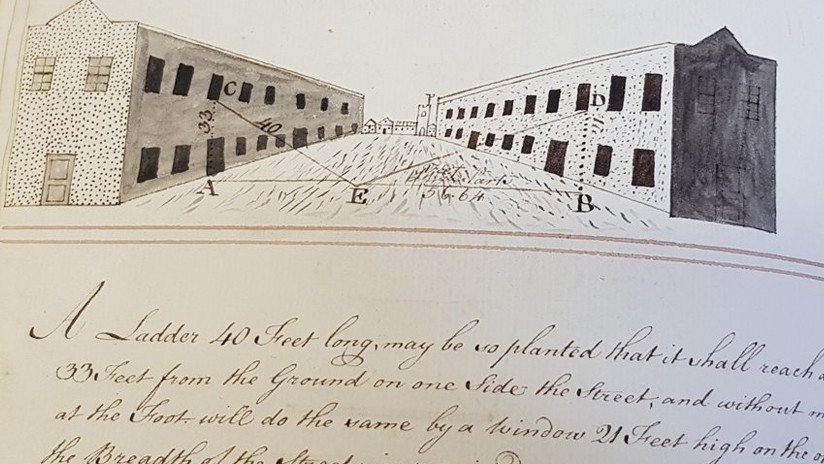 C
D
33
40
21
A
E
B
56.64
A Ladder 40 Feet long, may be so planted that it shall reach a
33 Feet from the Ground on one Side the Street, and without m
at the Foot will do the same by a Window 21 Feet high on the o
the Breadth of the Street